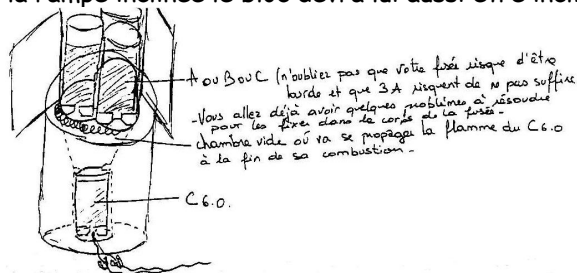 A ou B ou C (n'oubliez pas que votre fusée risque d'être
lourde et que 3 A risquent de ne pas suffire
- Vous allez déjà avoir quelques problèmes à résoudre
pour les fixer dans le corps de la fusée -
chambre vide où va se propager la flamme du C6.0
à la fin de sa combustion -
C6.0.